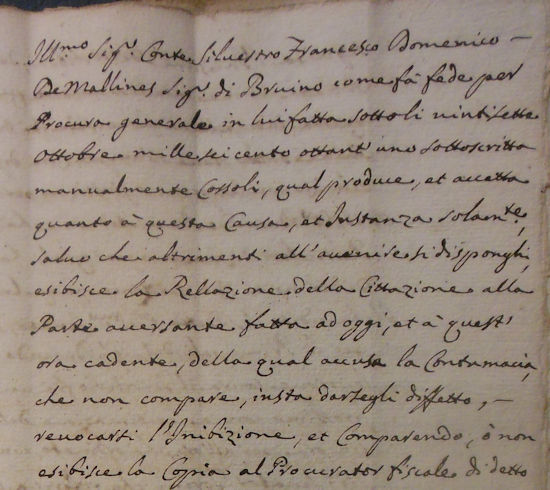 Ill.mo Sig.r Conte Siluestro Francesco Domenico –
De Mallines Sig.r di Bruino come fà fede per
Procura generale in lui fatta sotto li uintisette
Ottobre mille sei cento ottant'uno sottoscritta
manualmente Cossoli, qual produce, et accetta
quanto à questa Causa, et Instanza solam.te,
saluo che altrimenti all'auenire si disponghi,
esibisce la Rellazione della Cittazione alla
Parte auersante fatta ad oggi, et à quest'
ora cadente, della qual accusa la Contumacia,
che non compare, insta darsegli diffetto, –
reuocarsi l'Inibizione, et Comparendo, ò non
esibisce la Copia al Procurator fiscale di detto